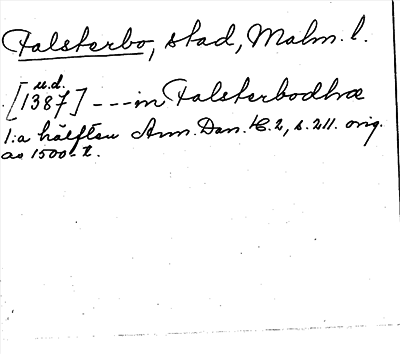 Falsterbo, stad, Malm. l.
u.d.
[1387] --- in Falsterbodhræ
1:a hälften Ann. Dan. H. 2, s. 211. orig.
av 1500-t.